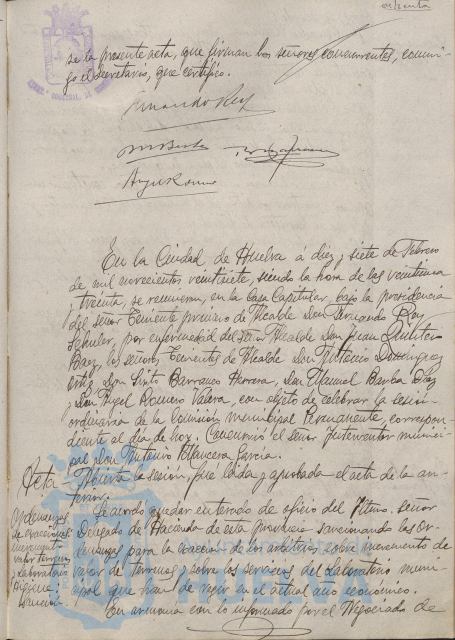 ochenta
se la presente acta, que firman los señores concurrentes, conmi-
go el Secretario, que certifico.
En la Ciudad de Huelva á diez y siete de Febrero
de mil novecientos veintisiete, siendo la hora de las veintiuna
y treinta, se reunieron, en la casa Capitular, bajo la presidencia
del señor Teniente primero de Alcalde Don Fernando Rey
por enfermedad del señor Alcalde Don Juan Quintero
Baez, los señores Tenientes de Alcalde Don Antonio Dominguez
Ortiz, Don Sixto Barranco Herrera, Don Manuel Barba Diaz
y Don Angel Romero Valera, con objeto de celebrar la sesion
ordinaria de la Comisión municipal Permanente, correspon-
diente al dia de hoy. Concurrió el señor Interventor munici-
pal Don Antonio García.
Acta - Abierta la sesión, fué leida y aprobada el acta de la an-
terior.
Ordenanzas
de exacciones
incremento
valor terrenos
y Laboratorio
Higiene:
sanción.
Se acordó quedar enterado de oficio del Iltmo. señor
Delegado de Hacienda de esta provincia sancionando las Or-
denanzas para la exacción de los arbitrios sobre incremento de
valor de terrenos y sobre los servicios del Laboratorio muni-
cipal que han de regir en el actual año económico.
En armonia con lo informado por el Negociado de